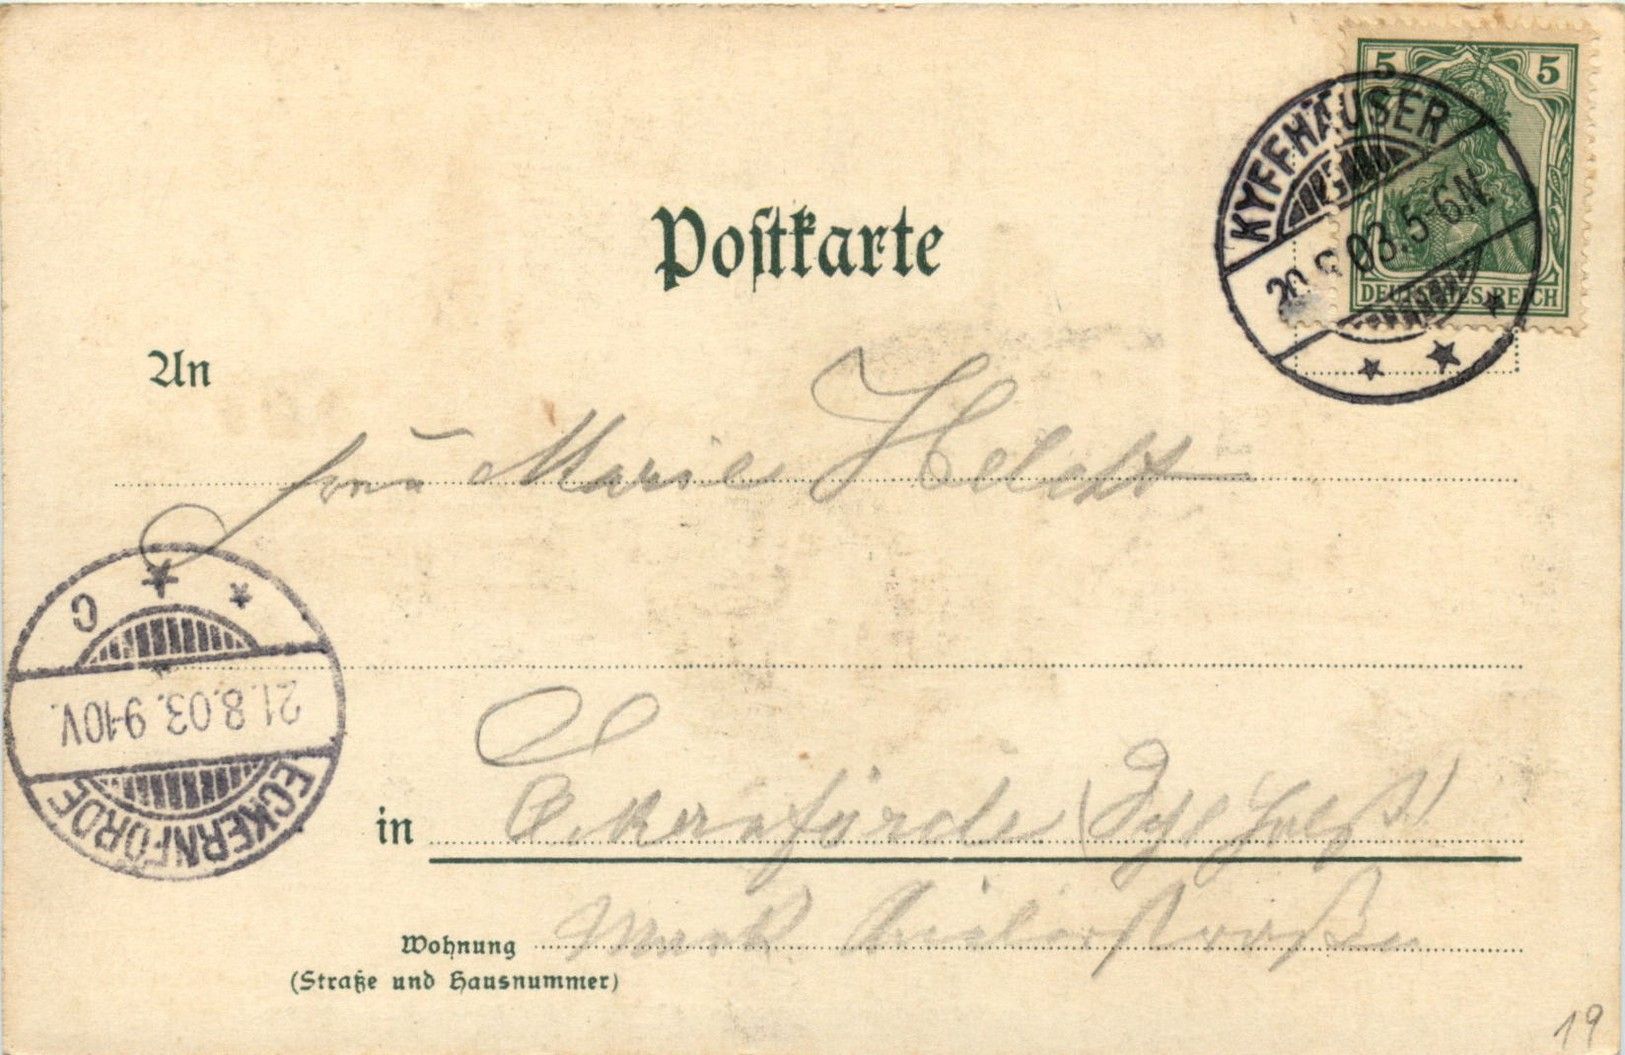 5 5
DEUTSCHES REICH
KYFFHÄUSER
20.8.03.5-6N.
Postkarte
An
Frau Marie Hecht
C
21.8.03.9-10V.
ECKERNFÖRDE
in Eckernförde (Schl. Holst)
Wohnung
(Straße und Hausnummer)
19